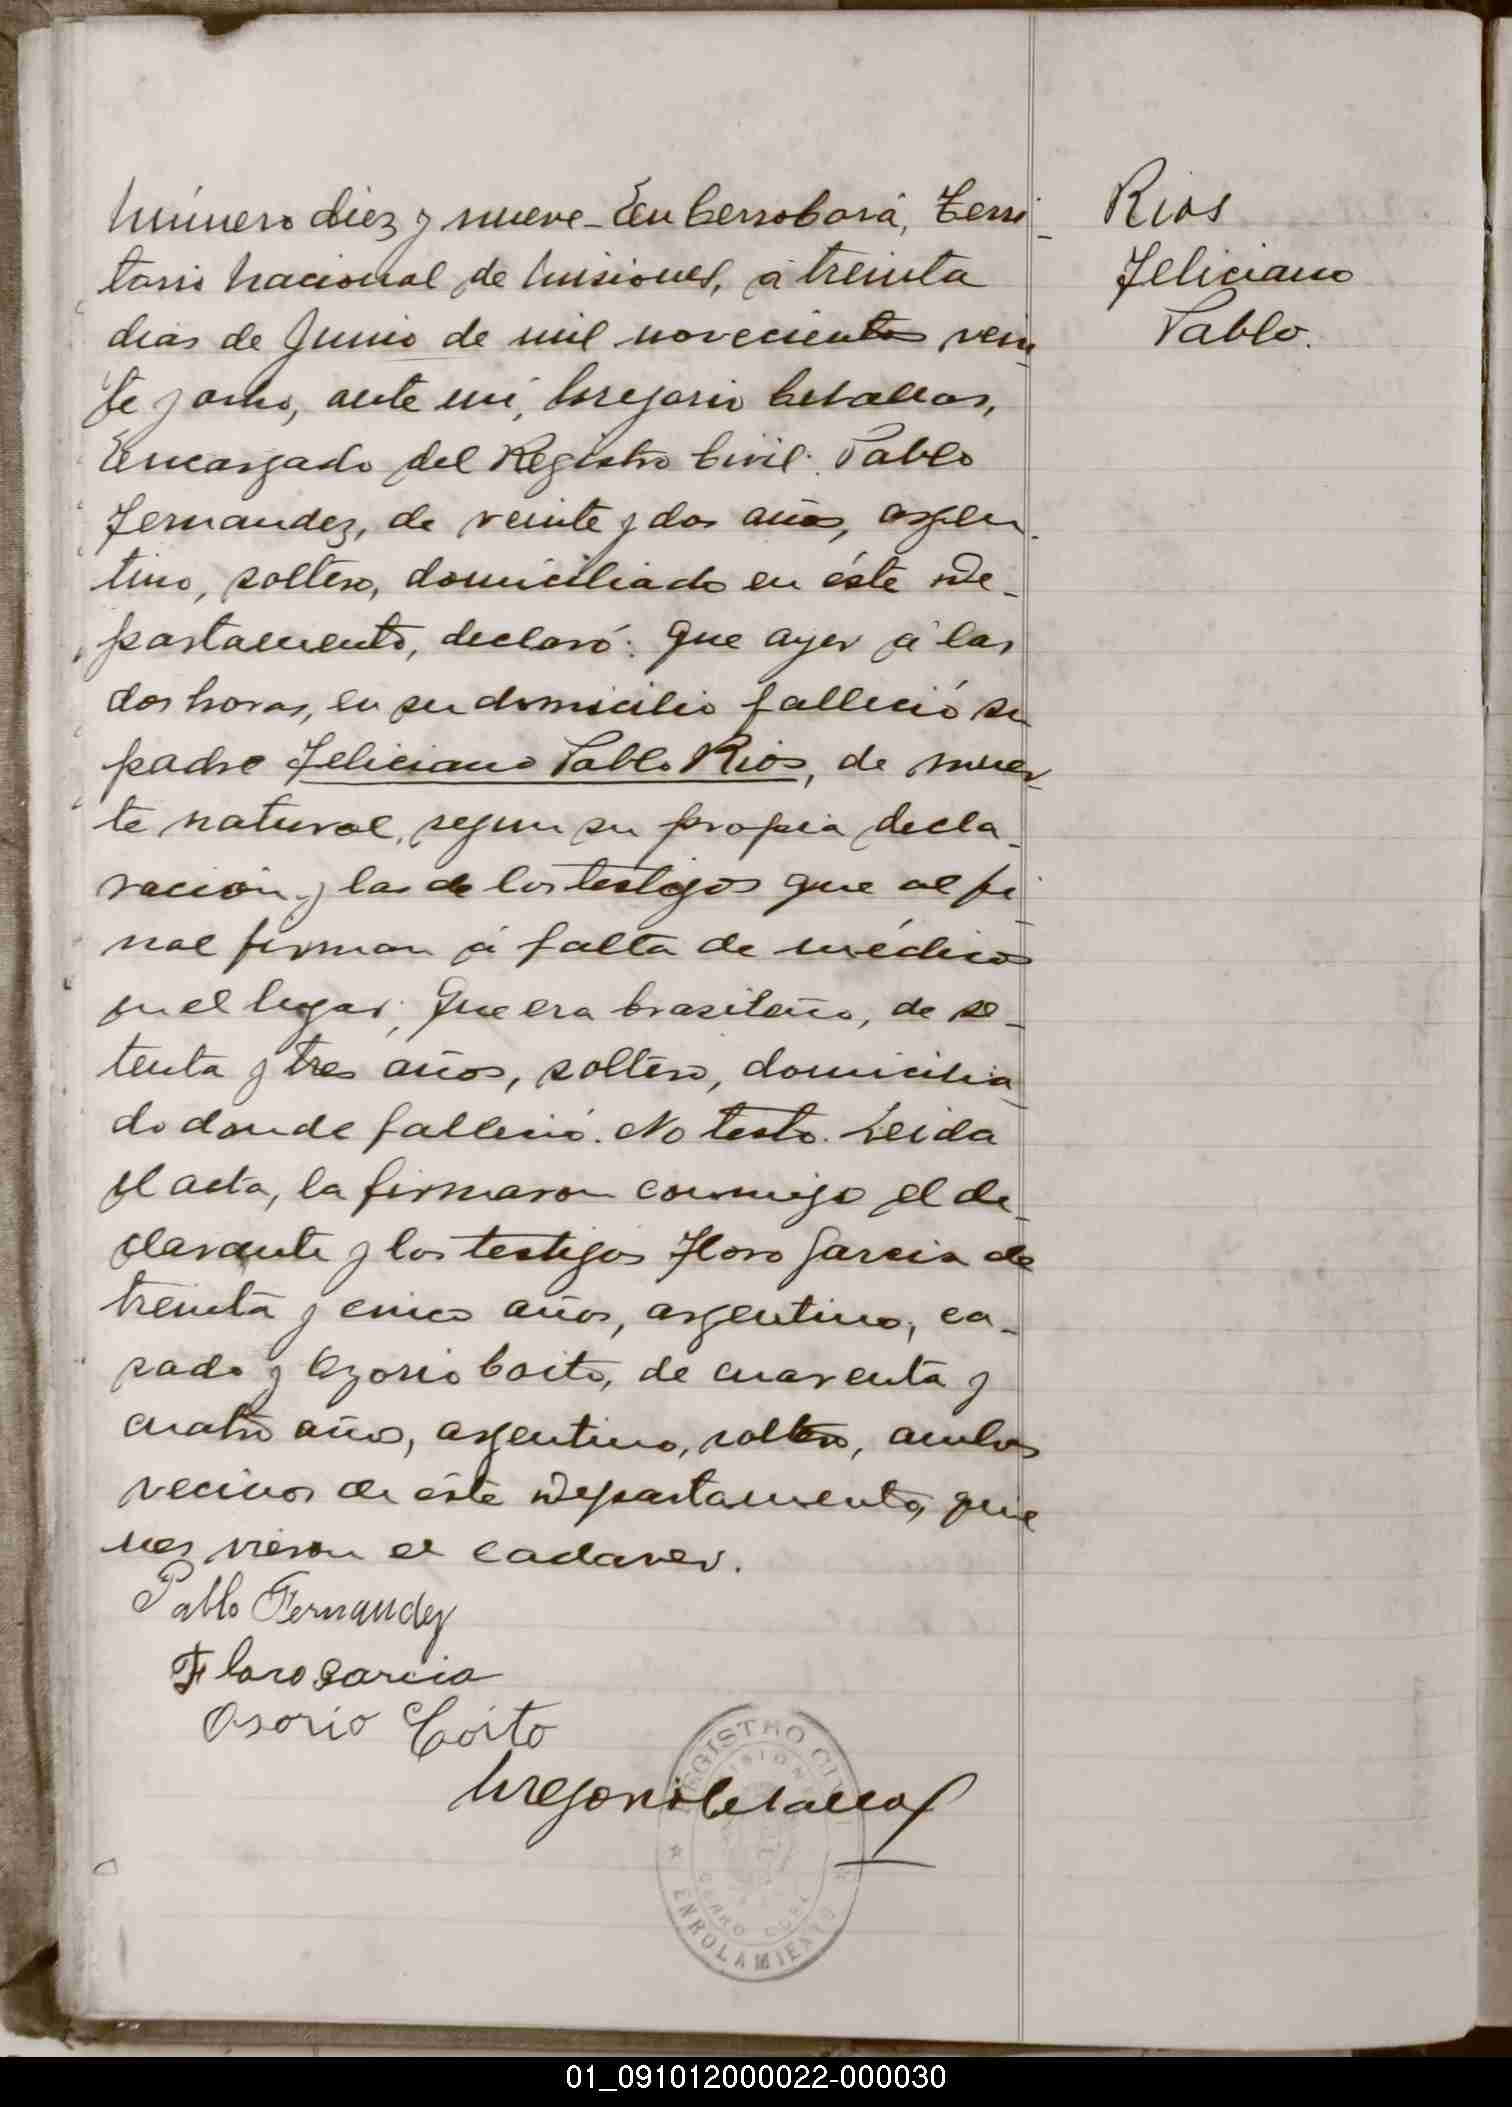 Número diez y nueve - En Cerro Corá, Terri-
torio Nacional de Misiones, á treinta
dias de Junio de mil novecientos vein-
te y ocho, ante mí, Gregorio Ceballos,
Encargado del Registro Civil: Pablo
Fernandez, de veinte y dos años, argen-
tino, soltero, domiciliado en éste De-
partamento, declaró: Que ayer á las
dos horas, en su domicilio falleció su
padre Feliciano Pablo Rios, de muer-
te natural, segun su propia decla-
racion y las de los testigos que al fi-
nal firman á falta de médicos
en el lugar; Que era brasileño, de se-
tenta y tres años, soltero, domicilia-
do donde falleció. No testó. Leida
el acta, la firmaron conmigo el de-
clarante y los testigos Floro Garcia de
treinta y cinco años, argentino, ca-
sado y Ozorio Coito, de cuarenta y
cuatro años, argentino, soltero, ambos
vecinos de éste Departamento, quie
nes vieron el cadaver.
Pablo Fernandez
Floro Garcia
Osorio Coito
Gregorio Ceballos
Rios
Feliciano
Pablo.
REGISTRO CIVIL
MISIONES
CERRO CORÁ
ENROLAMIENTO
01_091012000022-000030